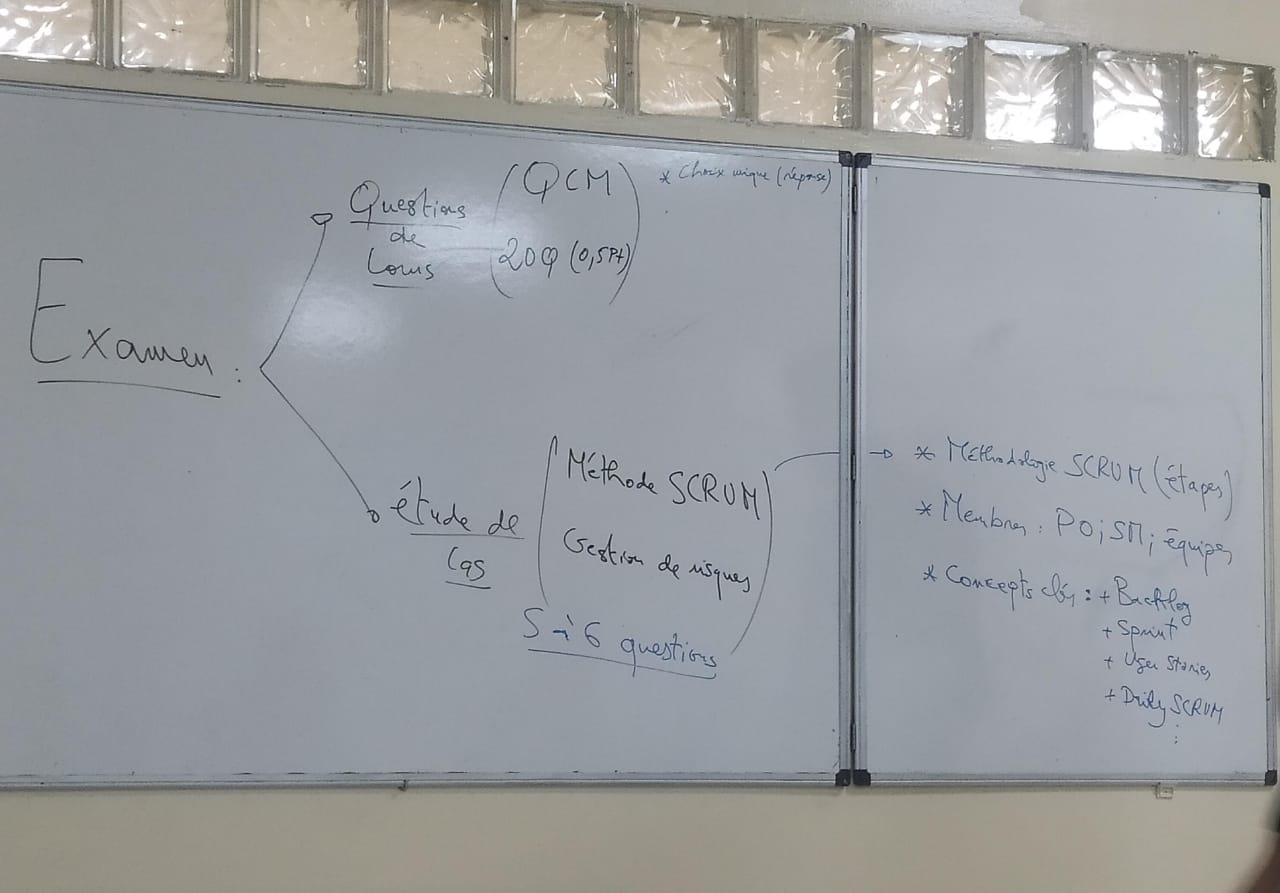 Examen :
Questions
de
Cours
(QCM)
20Q (0,5Pt)
* Choix unique (réponse)
étude de
Cas
Méthode SCRUM
Gestion de risques
5 à 6 questions
* Méthodologie SCRUM (étapes)
* Membres : PO; SM; équipes
* Concepts clés : + Backlog
+ Sprint
+ User Stories
+ Daily SCRUM
⋮